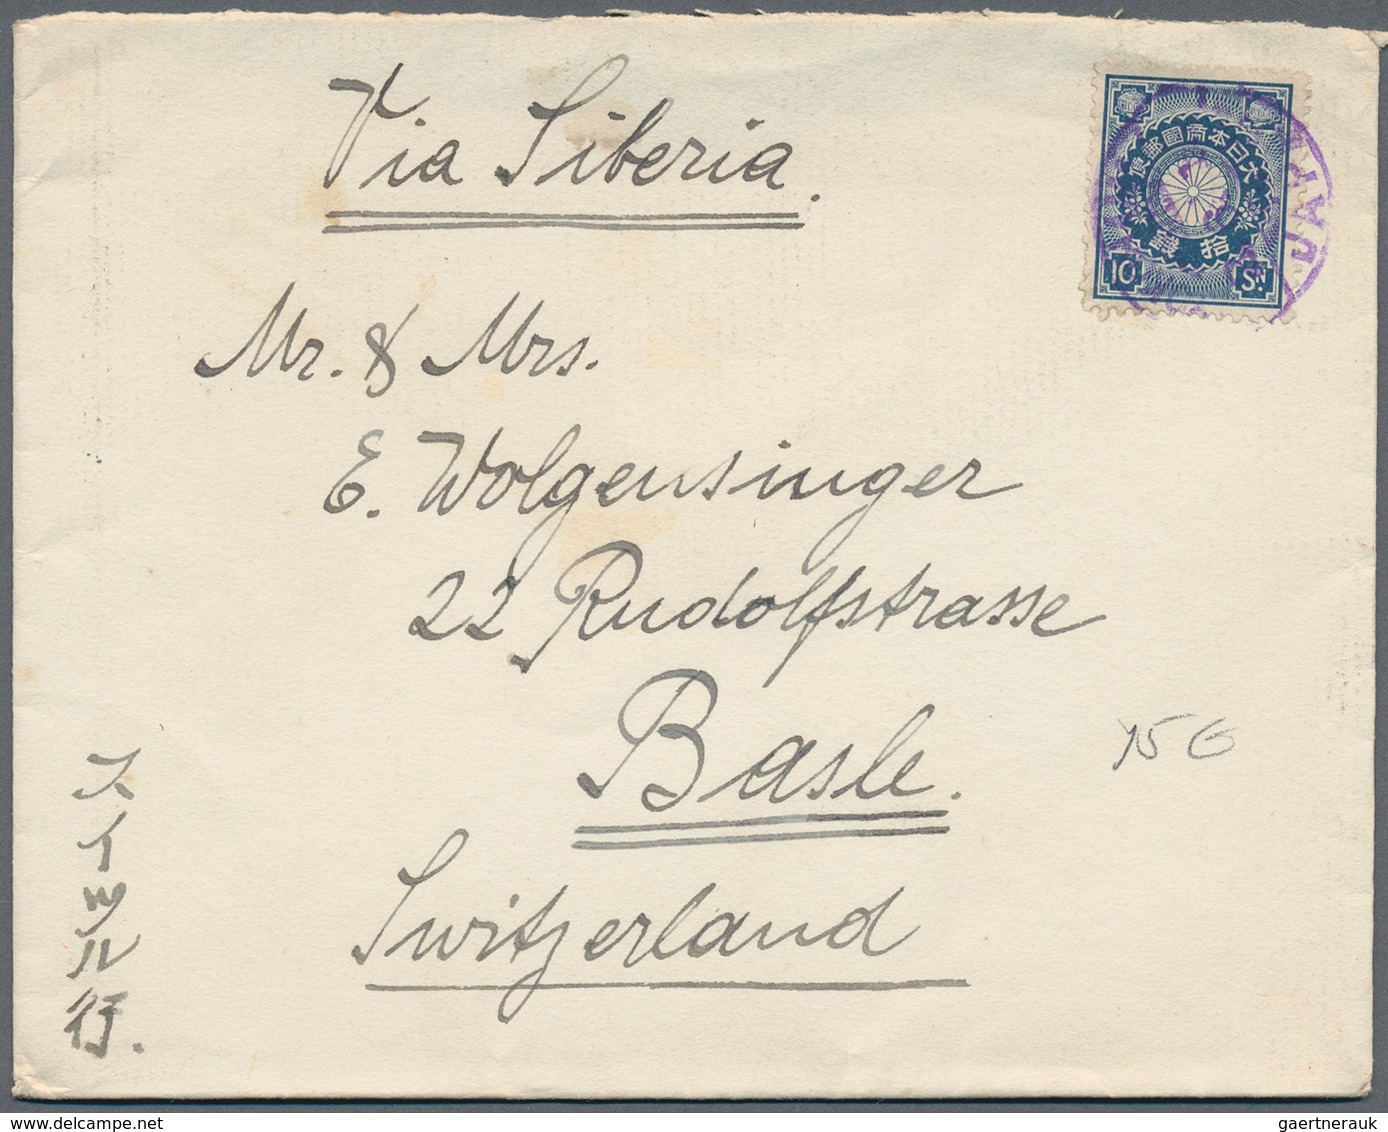 Via Siberia.
大日本帝國郵便
拾錢
10 Sn.
JAPAN
Mr. & Mrs.
E. Wolgensinger
22 Rudolfstrasse
Basle.
Switzerland
スイツル行.
gaertnerauk